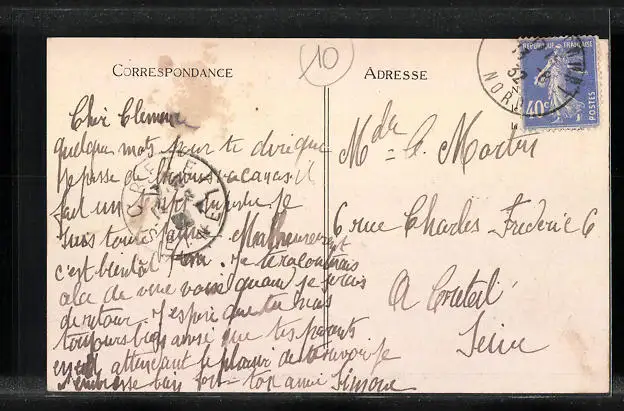 10
CORRESPONDANCE
ADRESSE
REPUBLIQUE FRANÇAISE
40c
POSTES
NORD
CRETEIL
Cher
quelques mots pour te dire que
je passe de bonnes vacances il
fait un je
suis toute Malheureusement
c'est bientôt fini. Je te raconterais
ala de vive voix quand je serais
de retour. J'espère que tu vas
toujours bien ainsi que tes parents
en attendant le plaisir de te revoir je
t'embrasse bien fort ton amie Simone
Mde A. Martin
6 rue Charles Frédéric 6
A Créteil
Seine